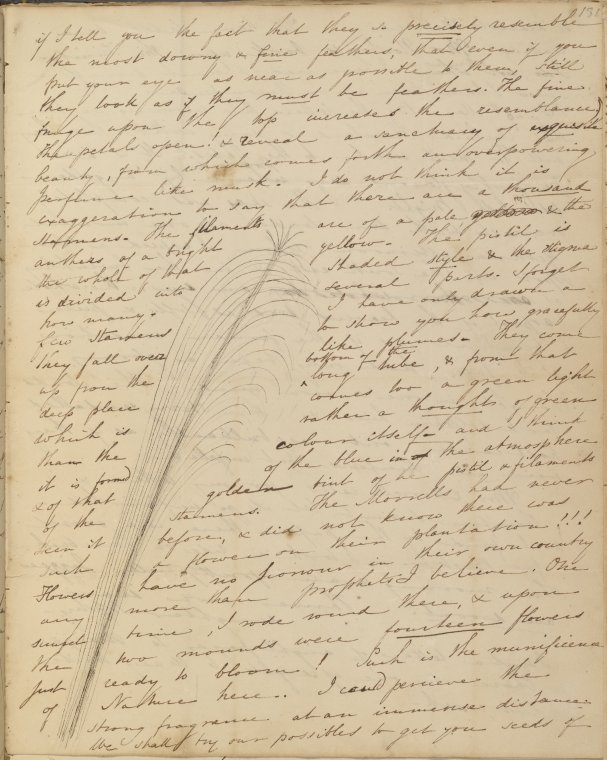 131
if I tell you the fact that they so precisely resemble
the most downy & fine feathers, that even if you
put your eye as near as possible to them, still
they look as if they must be feathers. The fine
fringe upon the top increases the resemblance)
The petals open! & reveal a sanctuary of exquisite
beauty, from which comes forth an overpowering
perfume like musk. I do not think it is
exaggeration to say that there are a thousand
Stamens. The filaments are of a pale & the
anthers of a bright yellow. The pistil is
the whole of that shaded style & the stigma
is divided into several parts. I forget
how many. I have only drawn a
few stamens to show you how gracefully
they fall over like plumes. They come
up from the bottom of the long tube, & from that
deep place comes too a green light
which is rather a thought of green
than the colour itself — and I think
it is formed of the blue in the atmosphere
& of that golden tint of the pistil & filaments
of the stamens. The Morrells had never
seen it before, & did not know there was
such a flower on their plantation!!!
Flowers have no honour in their own country
any more than prophets I believe. One
sunset time, I rode round there, & upon
the two mounds were fourteen flowers
just ready to bloom! Such is the munificence
of Nature here.. I could percieve the
strong fragrance at an immense distance.
We shall try our possibles to get you seeds of